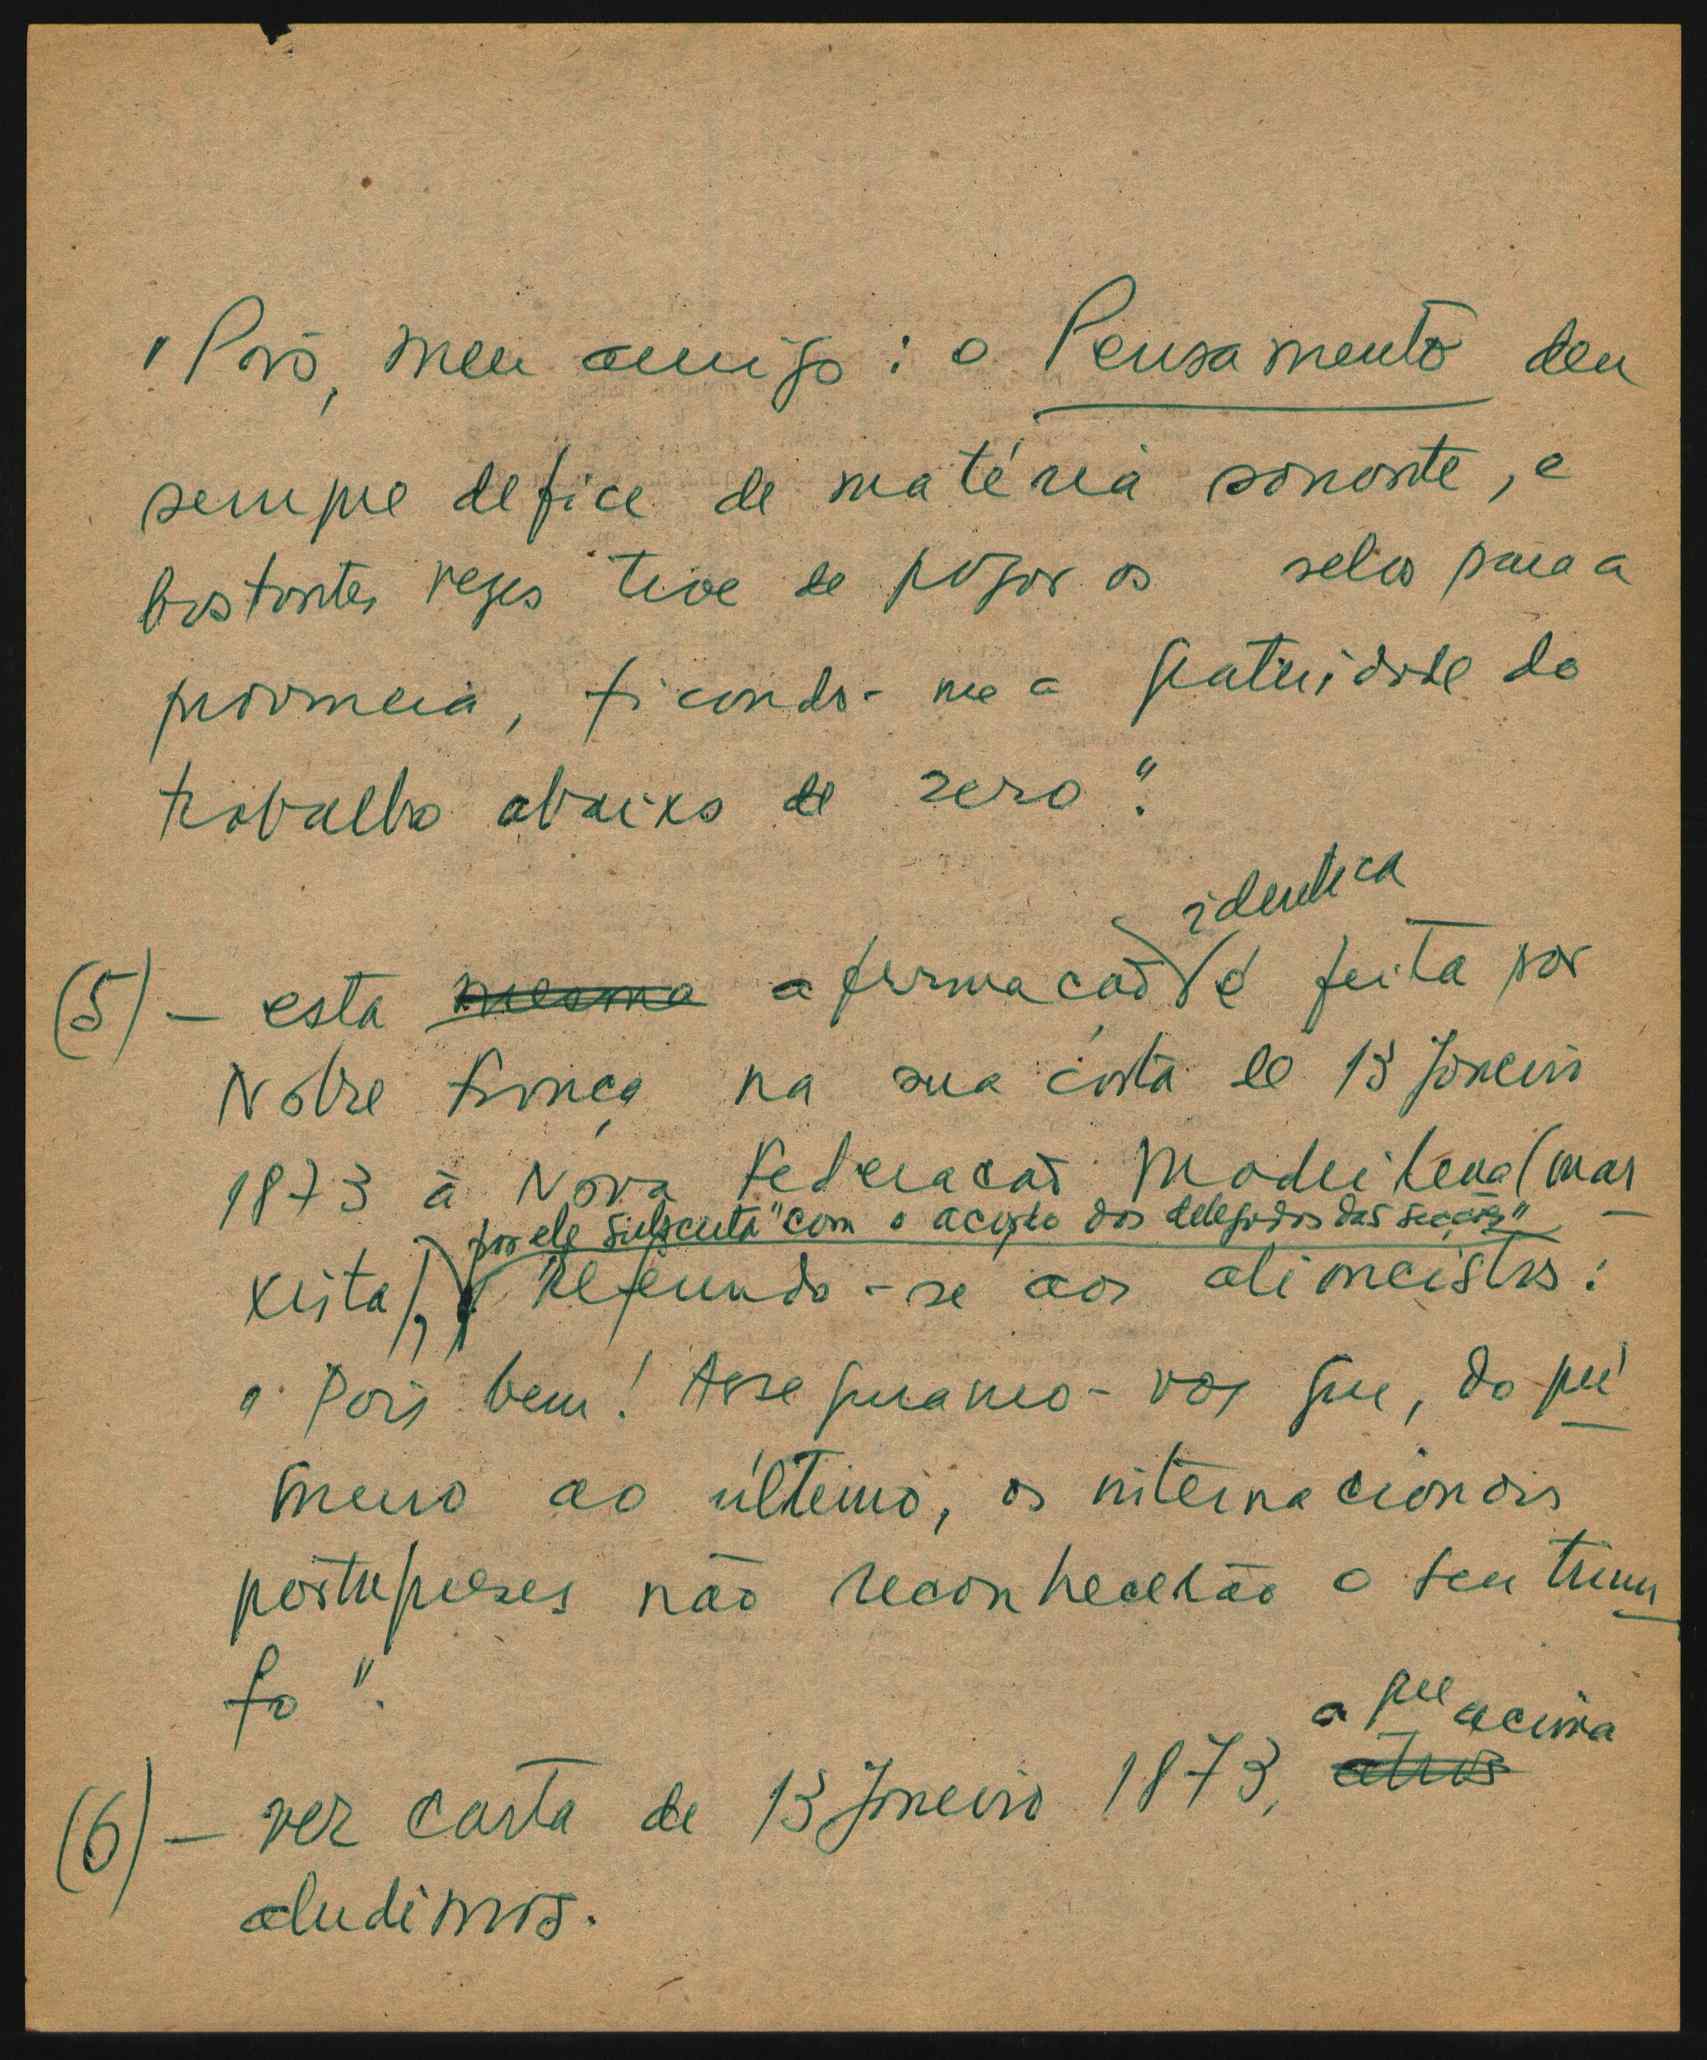 "Pois, meu amigo: o Pensamento deu
sempre defice de matéria sonante, e
bastantes vezes tive de pagar os selos para a
provincia, ficando-me a gratuidade do
trabalho abaixo de zero".
identica
(5) - esta mesma afirmação é feita por
Nobre França na sua carta de 13 Janeiro
1873 à Nova Federação Madrilena (mar
por ele subscrita "com o acordo dos delegados das secções"
xista), Referindo-se aos aliancistas:
"Pois bem! Asseguramo-vos que, do pri
meiro ao último, os internacionais
portugueses não reconhecerão o seu triun
fo".
a que acima
(6) - ver carta de 13 Janeiro 1873, atrás
aludimos.